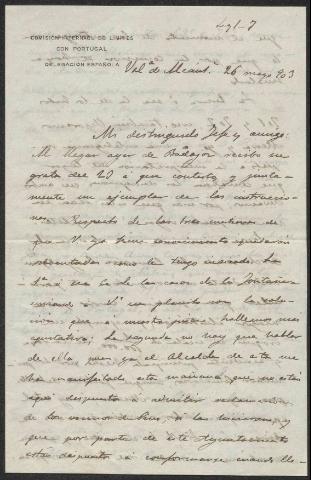 Lg 1-7
COMISIÓN INTERNAL. DE LÍMITES
CON PORTUGAL
DELEGACIÓN ESPAÑOLA
Vala. de Alcánt. 26 mayo 903
Mi distinguido Jefe y amigo:
Al llegar ayer de Badajoz recibo su
grata del 20 á que contesto y junta-
mente un ejemplar de las instruccio-
nes. Respecto de las tres
que V. ya tiene conocimiento quedarán
como le tengo indicado. La
1ª sea la de las casas de la Fontañera
á V. un planito con la solu-
ción que á nuestro juicio hallemos mas
equitativa; la segunda no hay que hablar
de ella pues ya el Alcalde de esta me
ha manifestado esta mañana que no están
aqui dispuestos á admitir reclamación
de los vecinos de
que por parte de este Ayuntamiento
están dispuestos á conformarse cuando lle-